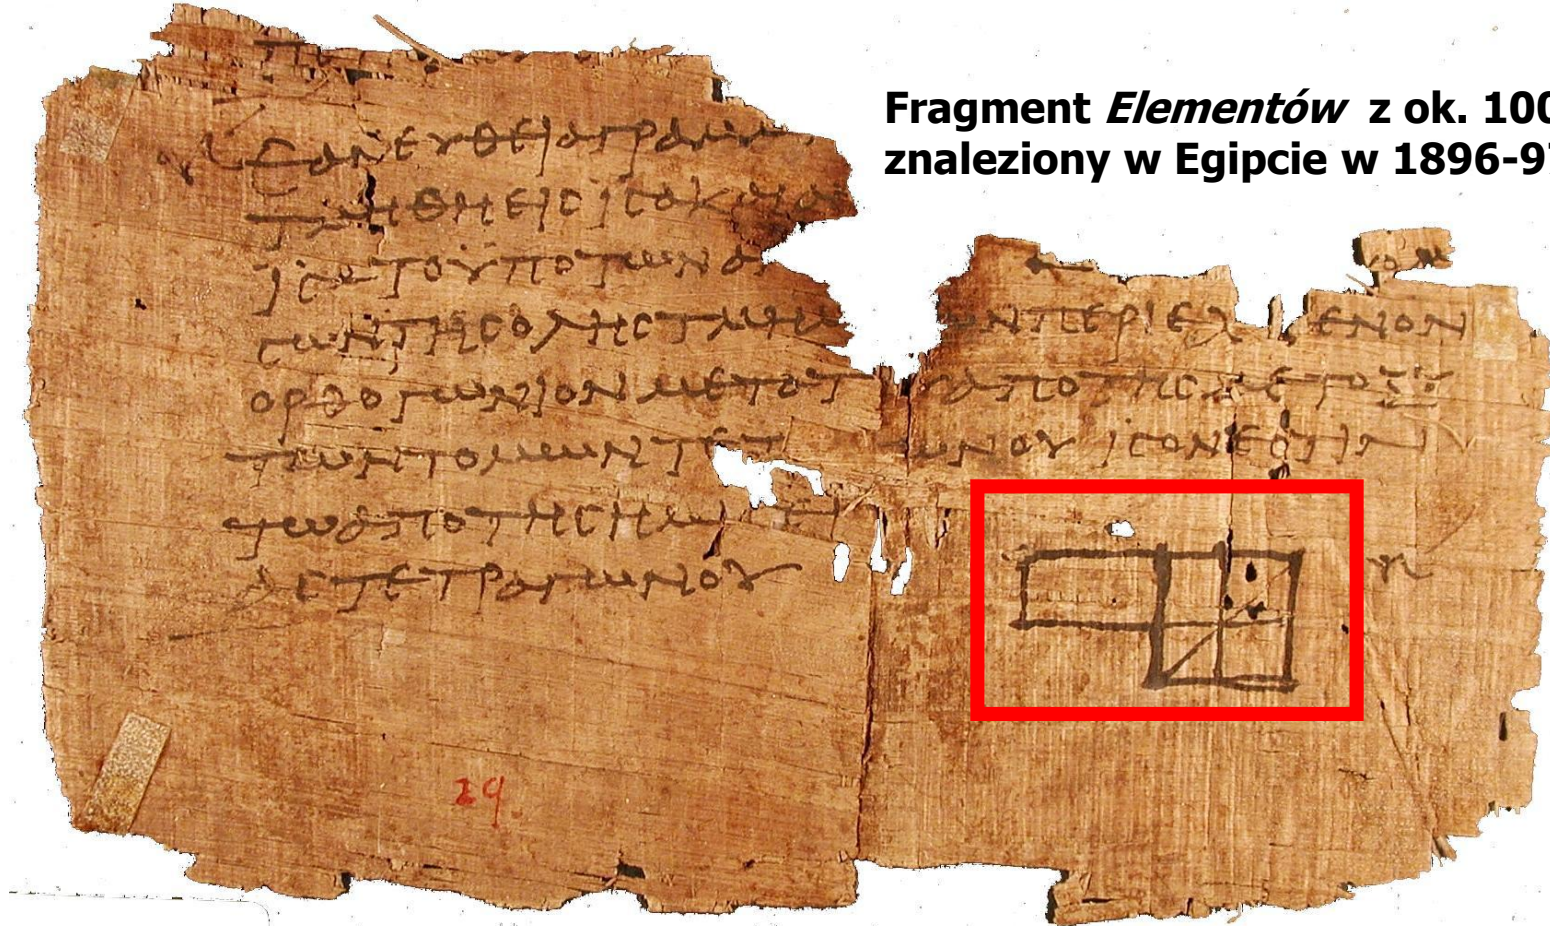 Fragment Elementów z ok. 100
znaleziony w Egipcie w 1896-97
ΕΑΝΕΥΘΕΙΑΓΡΑΜ
ΤΜΗΘΗΕΙϹΙϹΑΚΑΙΑ
ΙϹΑΤΟΥΠΟΤΩΝΑ
ϹΩΝΤΗϹΟΛΗϹΤΜΗΜ ΩΝΠΕΡΙΕΧ ΕΝΟΝ
ΟΡΘΟΓΩΝΙΟΝΜΕΤΟΤ ΟΑΠΟΤΗϹΜΕΤΟΞΥ
ΤΩΝΤΟΜΩΝΤΕΤ ΩΝΟΥ ΙϹΟΝΕϹΤΙΝ
ΤΩΑΠΟΤΗϹΗΜΙϹ
ΑϹΤΕΤΡΑΓΩΝΟΥ
29